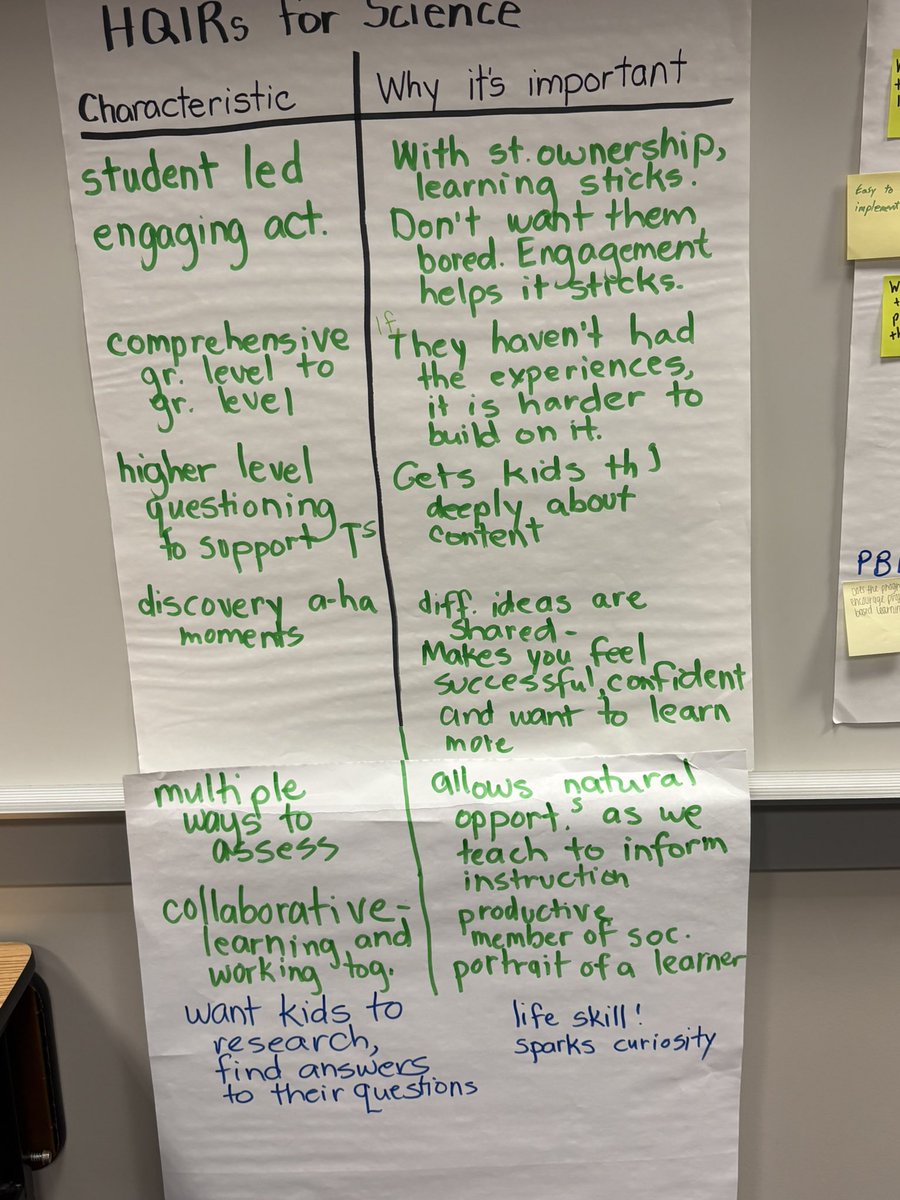 HQIRs for Science
Characteristic
Why it's important
student led
With st. ownership,
learning sticks.
engaging act.
Don't want them
bored. Engagement
helps it sticks.
comprehensive
gr. level to
gr. level
If
They haven't had
the experiences,
it is harder to
build on it.
higher level
questioning
to support Ts
Gets kids th
deeply about
content
discovery a-ha
moments
diff. ideas are
shared-
Makes you feel
successful, confident
and want to learn
more
multiple
ways to
assess
allows natural
opport.s as we
teach to inform
instruction
collaborative-
learning and
working tog.
productive
member of soc.
portrait of a learner
want kids to
research,
find answers
to their questions
life skill!
sparks curiosity
Easy to
implement
PB
based learnin